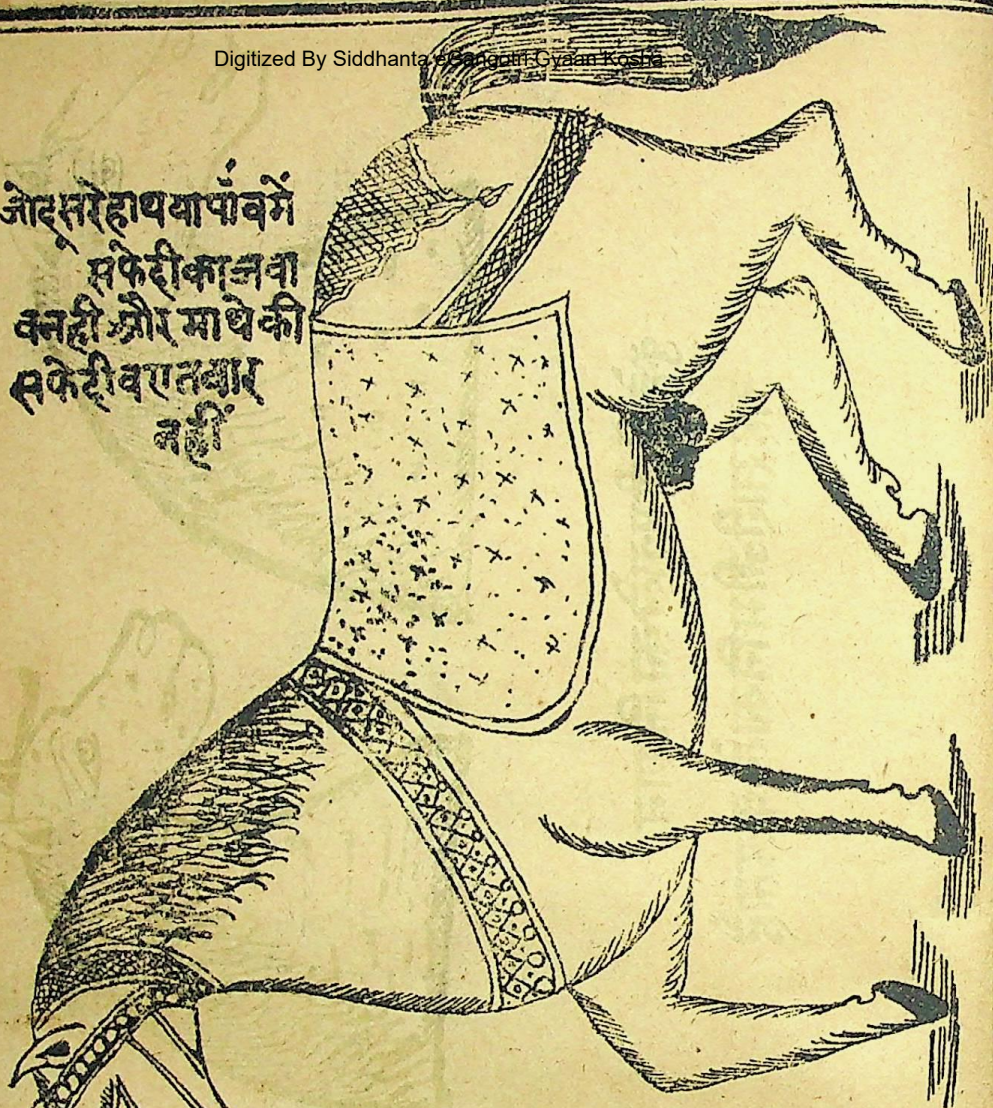 Digitized By Siddhanta eGangotri Gyaan Kosha
जोदूसरेहाथयापाँवमें
सफेदीका जवा
बनही और माथेकी
सफेदीवएतबार
नहीं